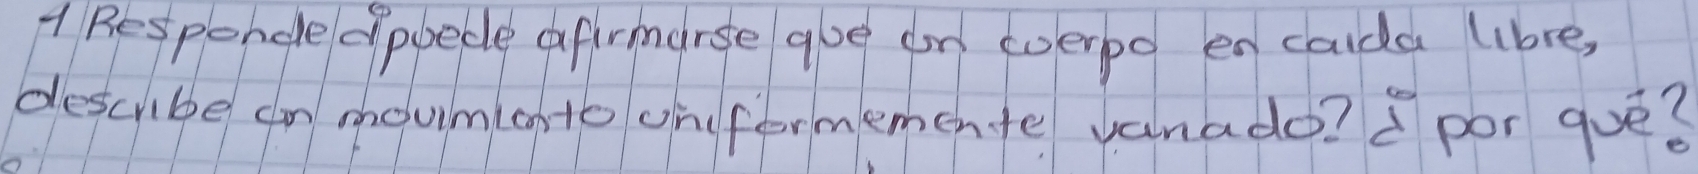 1 Responde ¿puede afirmarse que un cuerpo en caida libre,
describe un movimiento uniformemente variado? ¿ por qué?